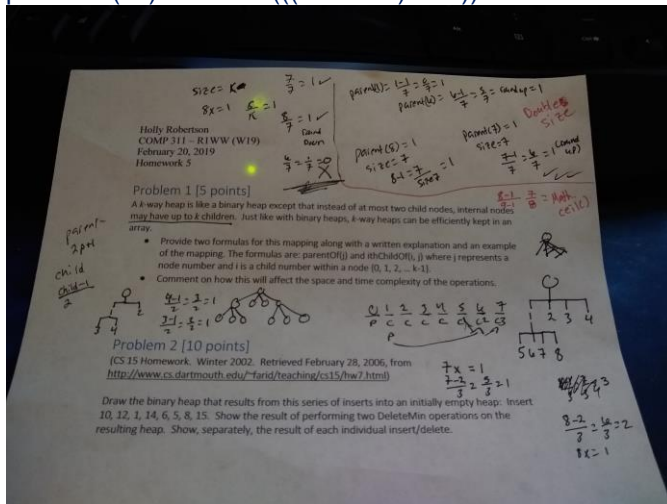 size = k
8x=1
7/7 = 1 ✓
8/7 = 1 ✓
round
down
parent(1) =
parent(6) = 6-1/7 = 5/7 = round up = 1
Double
size
parent(8) = 1
size = 7
8-1 = 7/size 7 = 1
parent(7) = 1
size = 7
7-1/7 = 6/7 = 1 (round
up)
8-1 7/8 = Math
ceil()
Holly Robertson
COMP 311 – R1WW (W19)
February 20, 2019
Homework 5
Problem 1 [5 points]
A k-way heap is like a binary heap except that instead of at most two child nodes, internal nodes
may have up to k children. Just like with binary heaps, k-way heaps can be efficiently kept in an
array.
• Provide two formulas for this mapping along with a written explanation and an example
of the mapping. The formulas are: parentOf(j) and ithChildOf(i, j) where j represents a
node number and i is a child number within a node (0, 1, 2, ... k-1).
• Comment on how this will affect the space and time complexity of the operations.
parent-
2p+1
child
child-1/2
1 2
3 4
4-1/2 = 3/2 = 1
3-1/2 = 2/2 = 1
0 1 2 3 4 5 6 7
P C C C C C C2 C3
P
1 2 3 4
5 6 7 8
Problem 2 [10 points]
(CS 15 Homework. Winter 2002. Retrieved February 28, 2006, from
http://www.cs.dartmouth.edu/~farid/teaching/cs15/hw7.html)
7x = 1
7-2/3 = 5/3 = 1
8-2/3 = 6/3 = 2
8x = 1
Draw the binary heap that results from this series of inserts into an initially empty heap: Insert
10, 12, 1, 14, 6, 5, 8, 15. Show the result of performing two DeleteMin operations on the
resulting heap. Show, separately, the result of each individual insert/delete.